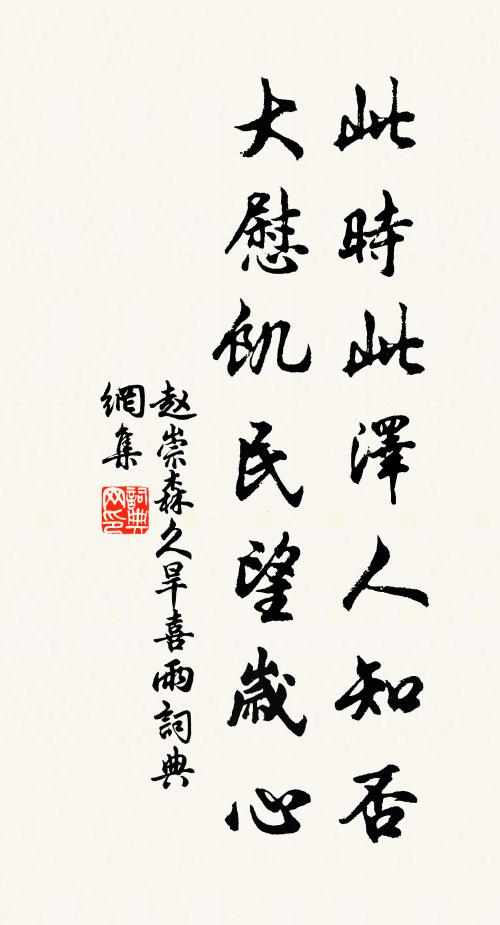 此時此澤人知否
大慰飢民望歲心
赵崇森久旱喜雨詞典
網集
詞典
网印